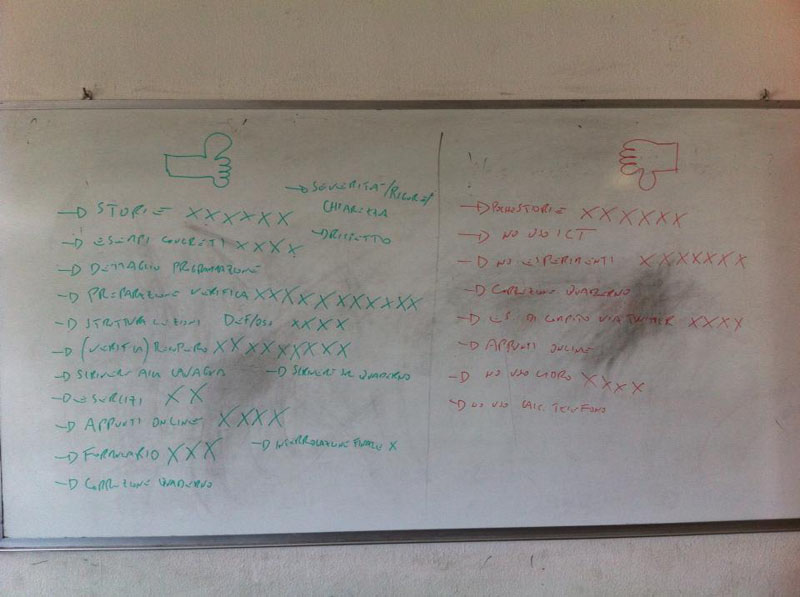 → STORIE XXXXXX
→ ESEMPI CONCRETI XXXX
→ DETTAGLIO PRESENTAZIONE
→ PREPARAZIONE VERIFICA XXXXXXXXXXX
→ STRUTTURA LEZIONI DEF/OSO XXXX
→ (VERIFICA) RECUPERO XXXXXXXXX
→ SCRIVERE ALLA LAVAGNA → SCRIVERE SUL QUADERNO
→ ESERCIZI XX
→ APPUNTI ONLINE XXXX
→ FORMULARIO XXX → INTERROGAZIONE FINALE X
→ CORREZIONE QUADERNO
→ SEVERITÀ/RIGORE/
CHIAREZZA
→ RISPETTO
→ POCHE STORIE XXXXXX
→ NO USO ICT
→ NO ESPERIMENTI XXXXXXX
→ CORREZIONE QUADERNO
→ ES. DI COMPITO VIA TWITTER XXXX
→ APPUNTI ONLINE
→ NO USO LIBRO XXXX
→ NO USO CALC. TELEFONO